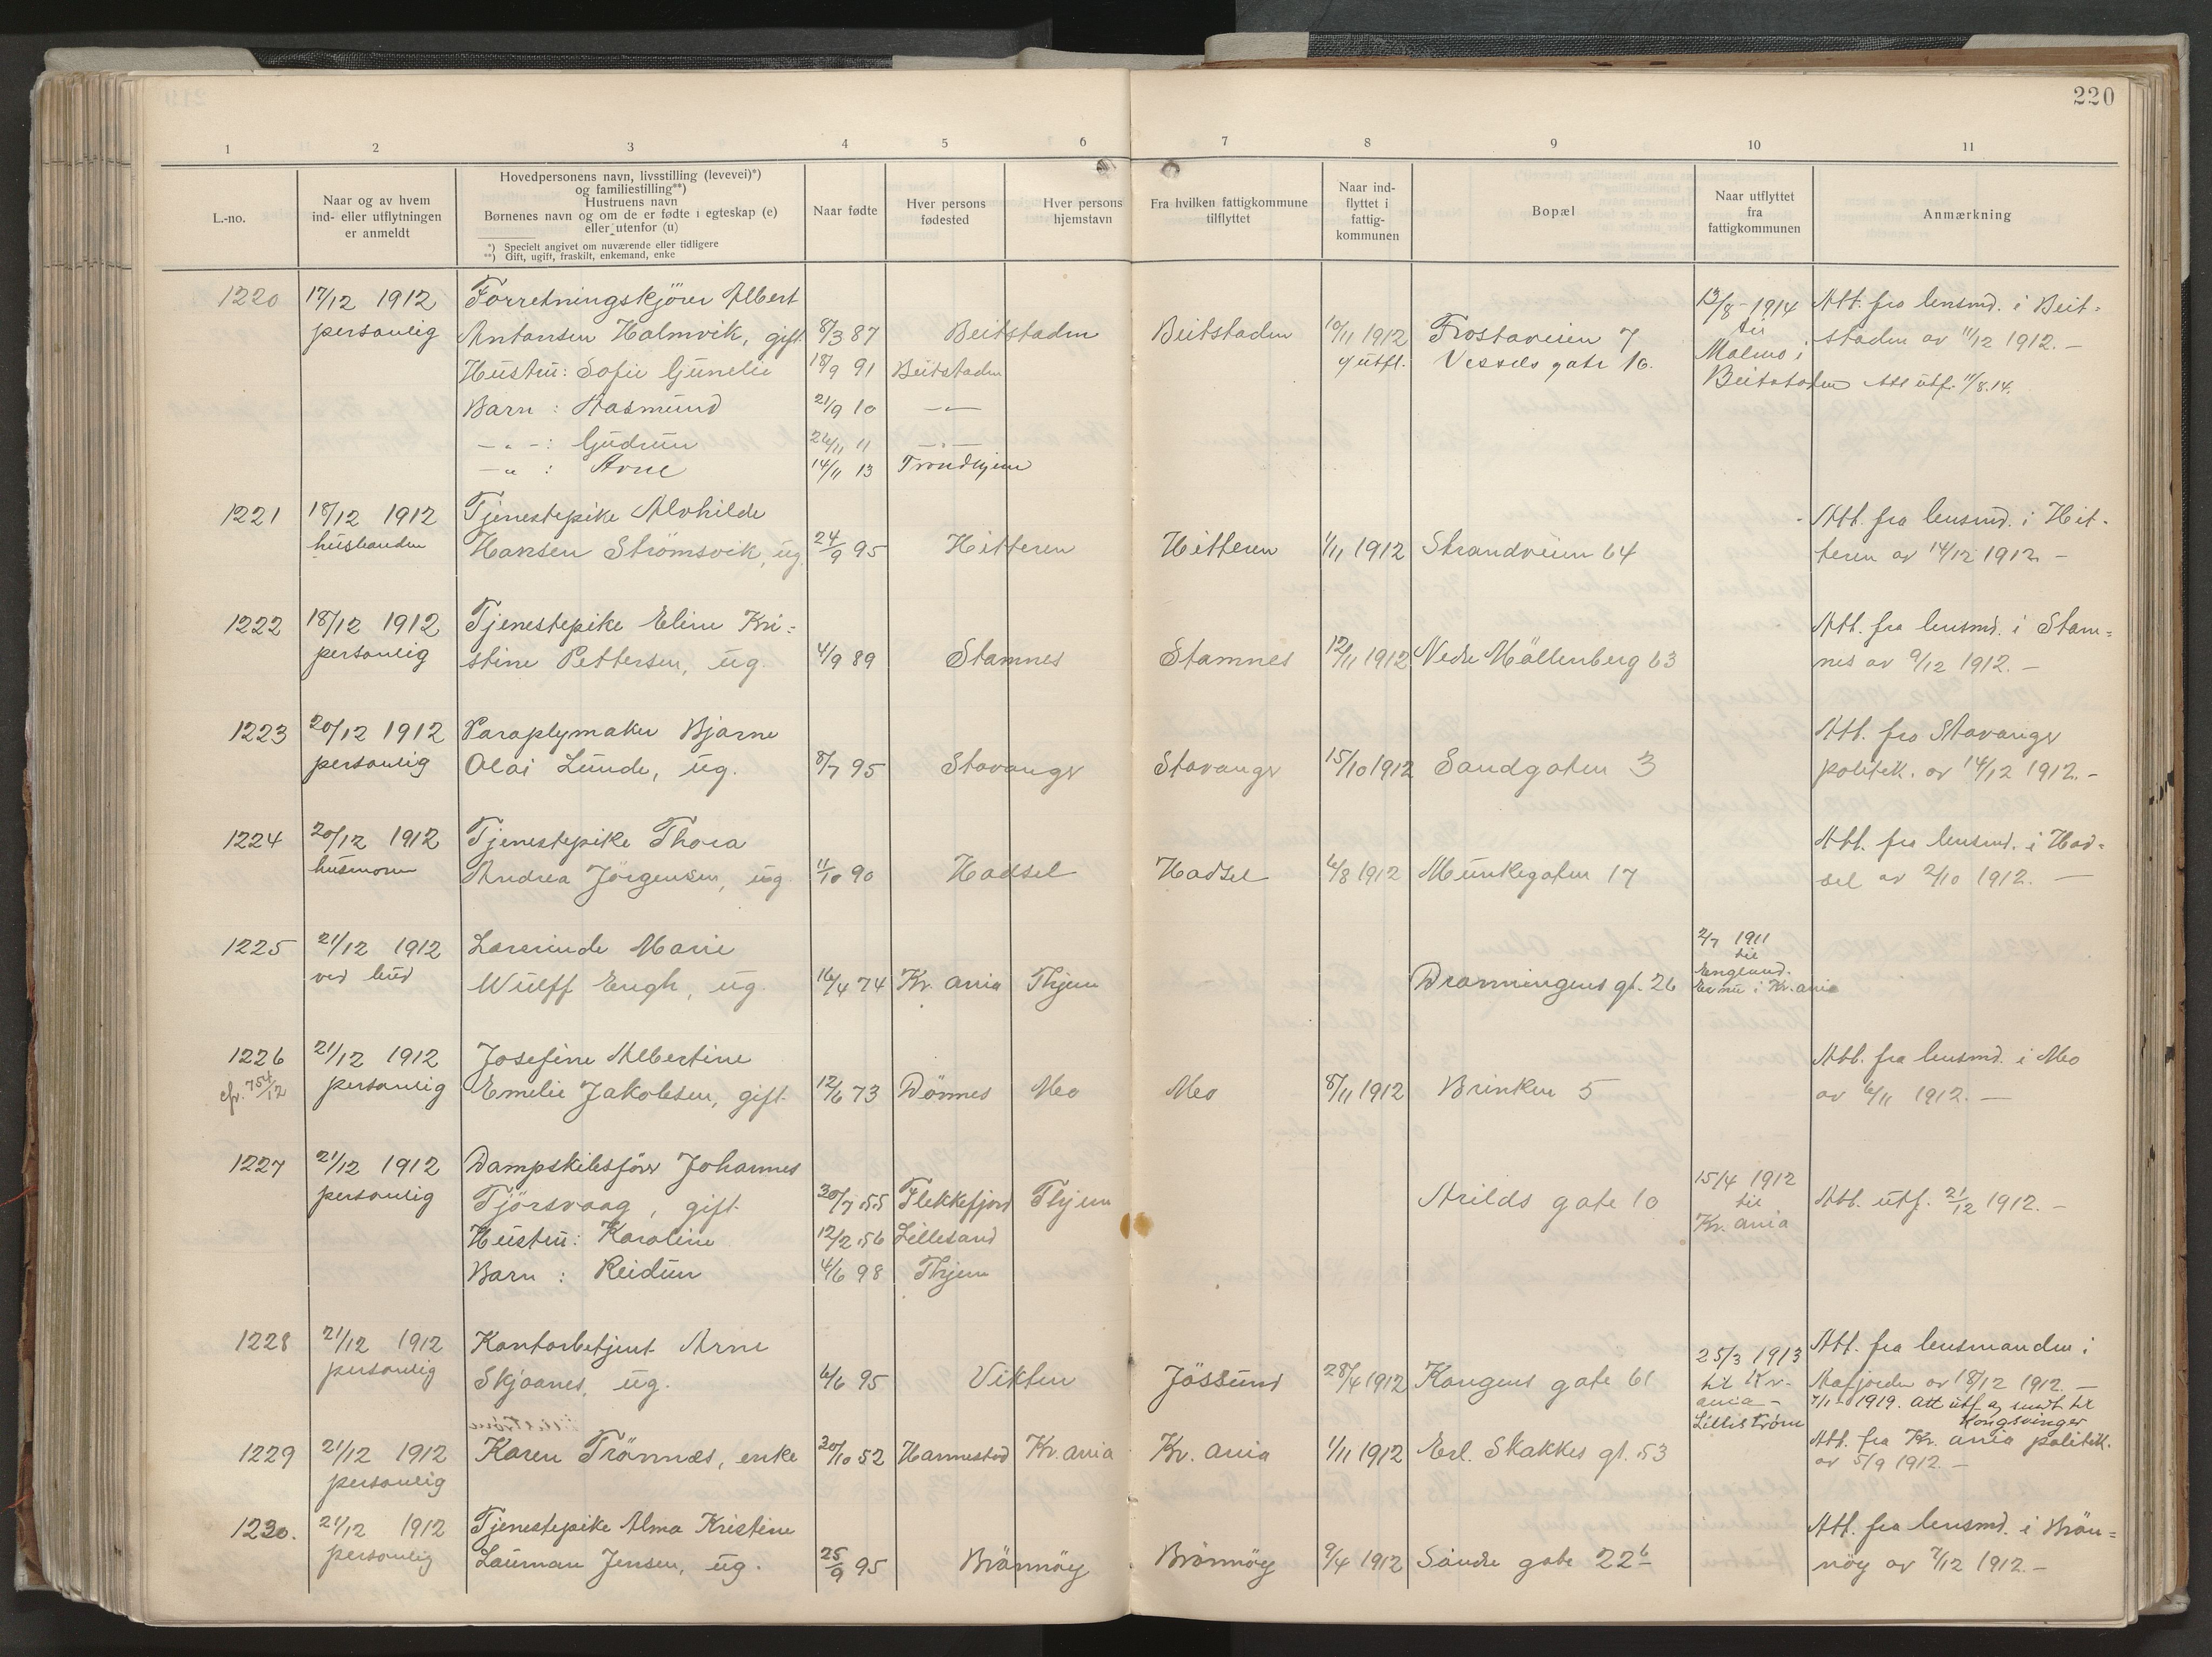 220
1 2 3 4 5 6 7 8 9 10 11
L.-no.
Naar og av hvem
ind- eller utflytningen
er anmeldt
Hovedpersonens navn, livsstilling (levevei)*)
og familiestilling**)
Hustruens navn
Børnenes navn og om de er fødte i egteskap (e)
eller utenfor (u)
*) Specielt angivet om nuværende eller tidligere
**) Gift, ugift, fraskilt, enkemand, enke
Naar fødte
Hver persons
fødested
Hver persons
hjemstavn
Fra hvilken fattigkommune
tilflyttet
Naar ind-
flyttet i
fattig-
kommunen
Bopæl
Naar utflyttet
fra
fattigkommunen
Anmærkning
1220 17/12 1912 Forretningskjörer Albert 13/8 - 1914 Att. fra lensmd. i Beit-
personlig Antonsen Holmvik, gift 8/3 87 Beitstaden Beitstaden 10/11 1912 Frostaveien 7 til staden av 11/12 1912. -
Hustru: Sofie Gunelie 18/9 91 Beitstaden g utfl. Vessels gate 16. Malmo i
Barn : Aasmund 21/9 10 -"- Beitstaden Att utf. 11/8.14.
-"- : Gudrun 26/11 11 -"-
-"- : Arne 14/11 13 Trondhjem
1221 18/12 1912 Tjenestepike Alvhilde Att. fra lensmd. i Hit-
husbonden Hansen Strömsvik, ug. 24/9 95 Hitteren Hitteren 1/11 1912 Strandveien 64 teren av 14/12 1912 -
1222 18/12 1912 Tjenestepike Eline Kri- Att. fra lensmd. i Stam-
personlig stine Pettersen, ug. 4/9 89 Stamnes Stamnes 12/11 1912 Nedre Möllenberg 63 nes av 9/12 1912. -
1223 20/12 1912 Paraplymaker Bjarne Att. fra Stavanger
personlig Olai Lunde, ug. 8/7 95 Stavanger Stavanger 15/10 1912 Sandgaten 3 politik. av 14/12 1912. -
1224 20/12 1912 Tjenestepike Thora Att. fra lensmd. i Had-
husmoren Andrea Jörgensen, ug. 11/10 90 Hadsel Hadsel 6/8 1912 Munkegaten 17 sel av 2/10 1912. -
1225 21/12 1912 Lærerinde Marie 2/7 1911
ved bud Wulff Engh, ug. 16/4 74 Kr.ania Thjem Dronningens gt. 26 til
England.
Er nu i Kr.ania
1226 21/12 1912 Josefine Albertine Att. fra lensmd. i Mo
cfr. 754/12 personlig Emelie Jakobsen, gift 12/6 73 Dönnes Mo Mo 8/11 1912 Brinken 5 av 6/11 1912. -
1227 21/12 1912 Dampskibsförer Johannes 15/4 1912
personlig Tjörsvaag, gift 30/7 55 Flekkefjord Thjem Arilds gate 10 til Att. utf. 21/12 1912. -
Hustru: Karoline 12/2 56 Lillesand Kr.ania
Barn : Reidun 4/6 98 Thjem
1228 21/12 1912 Kontorbetjent Arne 25/3 1913 Att. fra lensmanden i
personlig Skjaanes, ug. 6/6 95 Vikten Jössund 28/4 1912 Kongens gate 61 til Kr- Aafjorden av 18/12 1912. -
ania - 7/1 - 1919. Att utf. sendt til
Lilleström Kongsvinger
1229 21/12 1912 Karen Trönnes, enke 20/10 52 Hammestad Kr.ania Kr.ania 1/11 1912 Erl. Skakkes gt. 53 Att. fra Kr.ania politik.
personlig av 5/9 1912. -
1230. 21/12 1912 Tjenestepike Alma Kristine Att. fra lensmd. i Brön-
personlig Lauman Jensen, ug. 25/9 95 Brönnöy Brönnöy 9/4 1912 Söndre gate 22b nöy av 7/12 1912. -